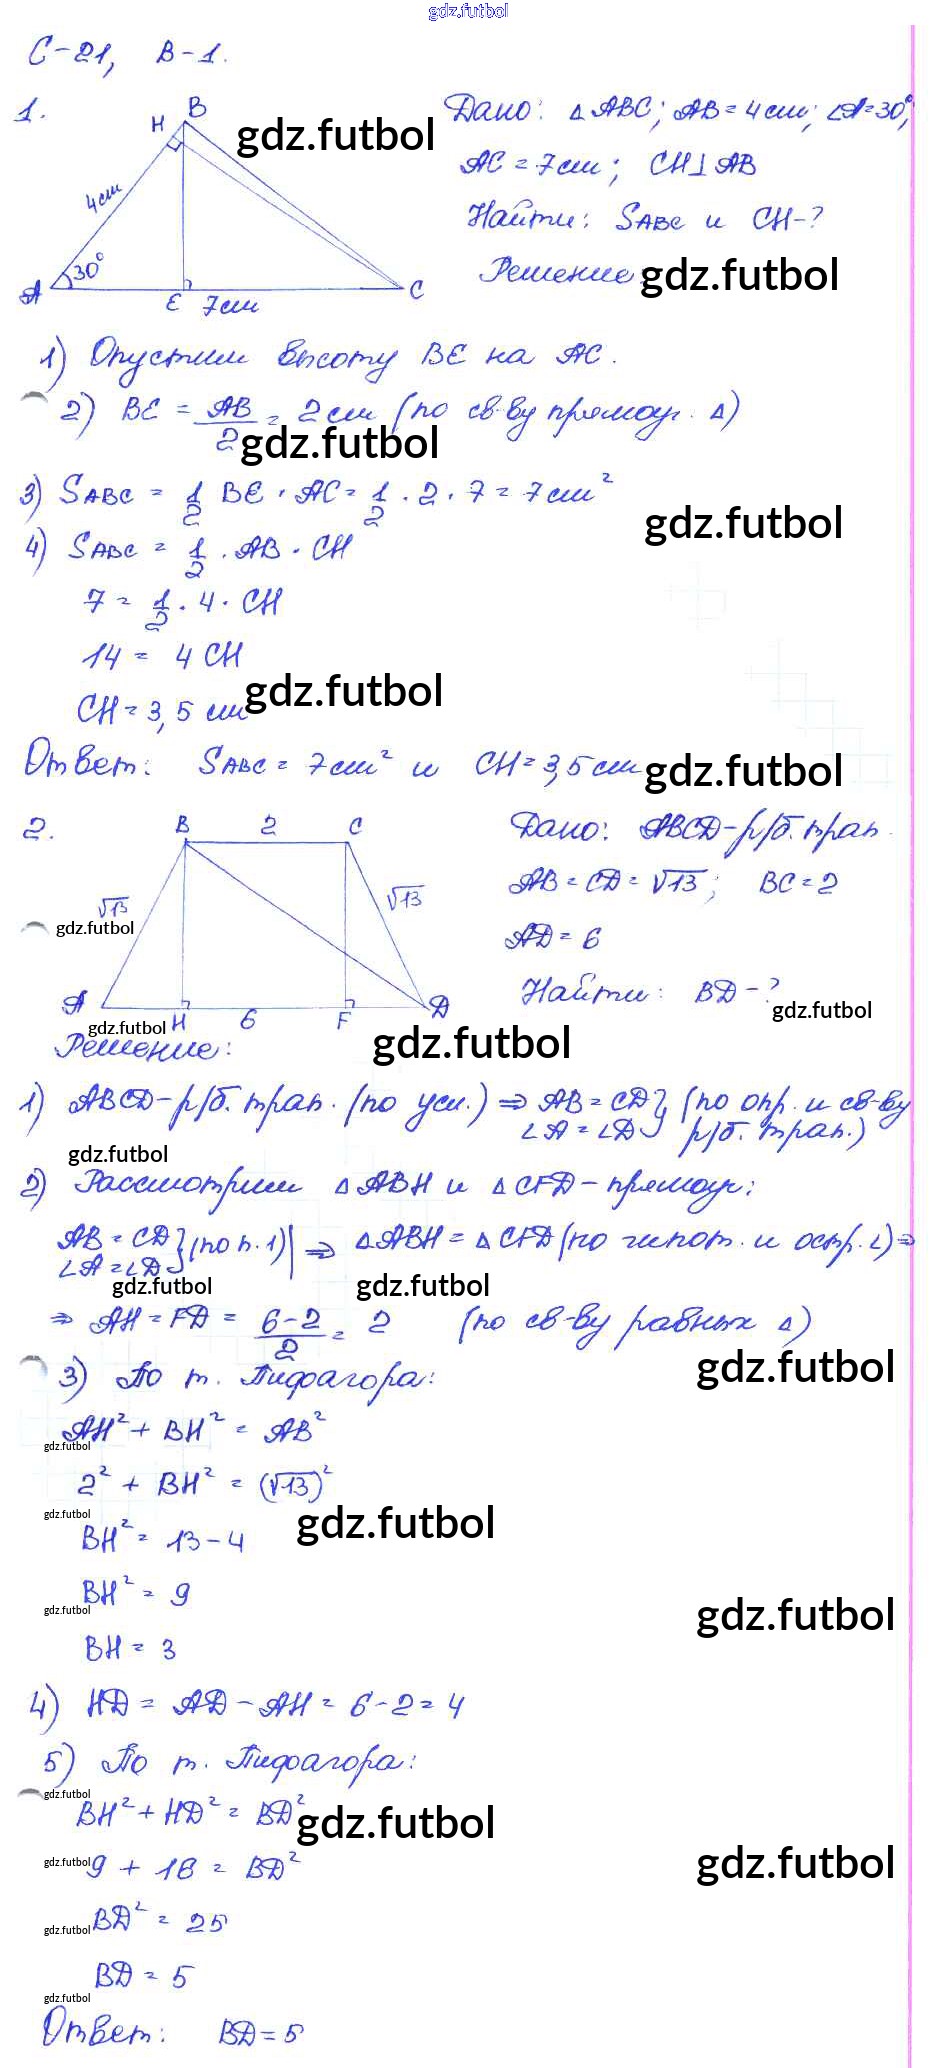 gdz.futbol
С-21, В-1.
1.
H B
4см
30°
A E 7см C
gdz.futbol
Дано: △ABC; AB = 4см; ∠A = 30°;
AC = 7см; CH⊥AB
Найти: SABC и CH-?
Решение: gdz.futbol
1) Опустим высоту BE на AC.
2) BE = AB/2 = 2см (по св-ву прямоуг. △)
gdz.futbol
3) SABC = 1/2 BE · AC = 1/2 · 2 · 7 = 7см²
gdz.futbol
4) SABC = 1/2 · AB · CH
7 = 1/2 · 4 · CH
14 = 4 CH
CH = 3,5 см gdz.futbol
Ответ: SABC = 7см² и CH = 3,5см gdz.futbol
2.
B 2 C
√13 √13
gdz.futbol
A H 6 F D
Дано: ABCD - р/б. трап.
AB = CD = √13; BC = 2
AD = 6
Найти: BD - ?
gdz.futbol
gdz.futbol
gdz.futbol
Решение:
1) ABCD - р/б. трап. (по усл.) ⇒ AB = CD } (по опр. и св-ву
∠A = ∠D } р/б. трап.)
gdz.futbol
2) Рассмотрим △ABH и △CFD - прямоуг:
AB = CD } (по п.1) | ⇒ △ABH = △CFD (по гипот. и остр. ∠) ⇒
∠A = ∠D }
gdz.futbol gdz.futbol
⇒ AH = FD = 6-2/2 = 2 (по св-ву равных △)
gdz.futbol
3) По т. Пифагора:
AH² + BH² = AB²
gdz.futbol
2² + BH² = (√13)²
gdz.futbol gdz.futbol
BH² = 13 - 4
BH² = 9
gdz.futbol gdz.futbol
BH = 3
4) HD = AD - AH = 6 - 2 = 4
5) По т. Пифагора:
gdz.futbol
BH² + HD² = BD² gdz.futbol
gdz.futbol 9 + 16 = BD² gdz.futbol
BD² = 25
gdz.futbol
BD = 5
gdz.futbol
Ответ: BD = 5